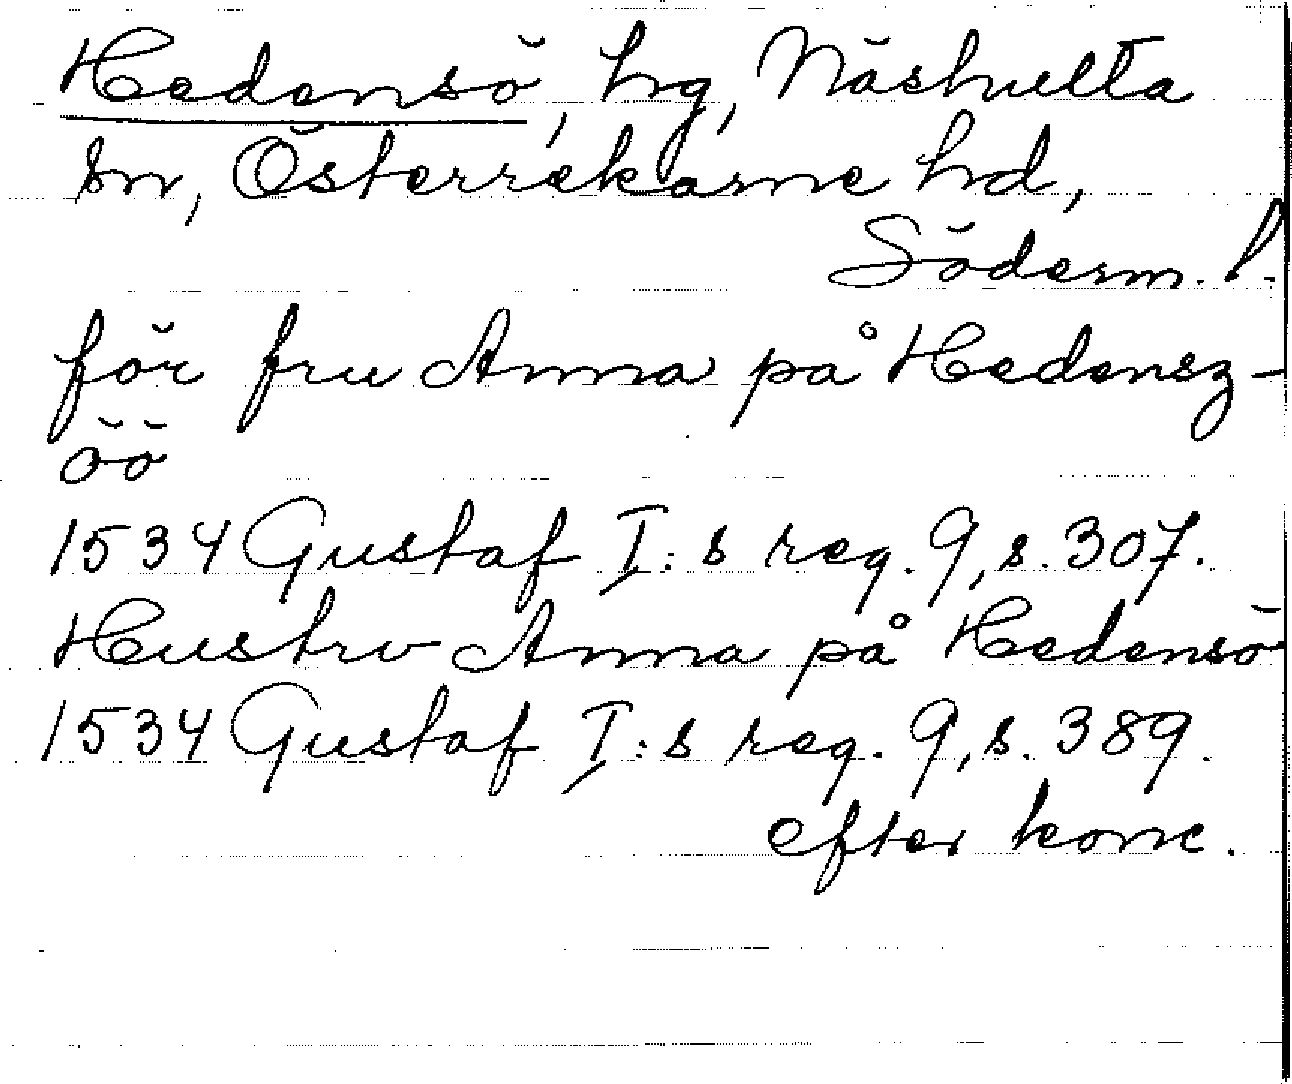 Hedensö, hrg, Näshulta
sn, Österrekarne hd,
Söderm. l.
för fru Anna på Hedensz-
öö
1534 Gustaf I:s reg. 9, s. 307.
Hustrv Anna på Hedensö
1534 Gustaf I:s reg. 9, s. 389.
efter konc.